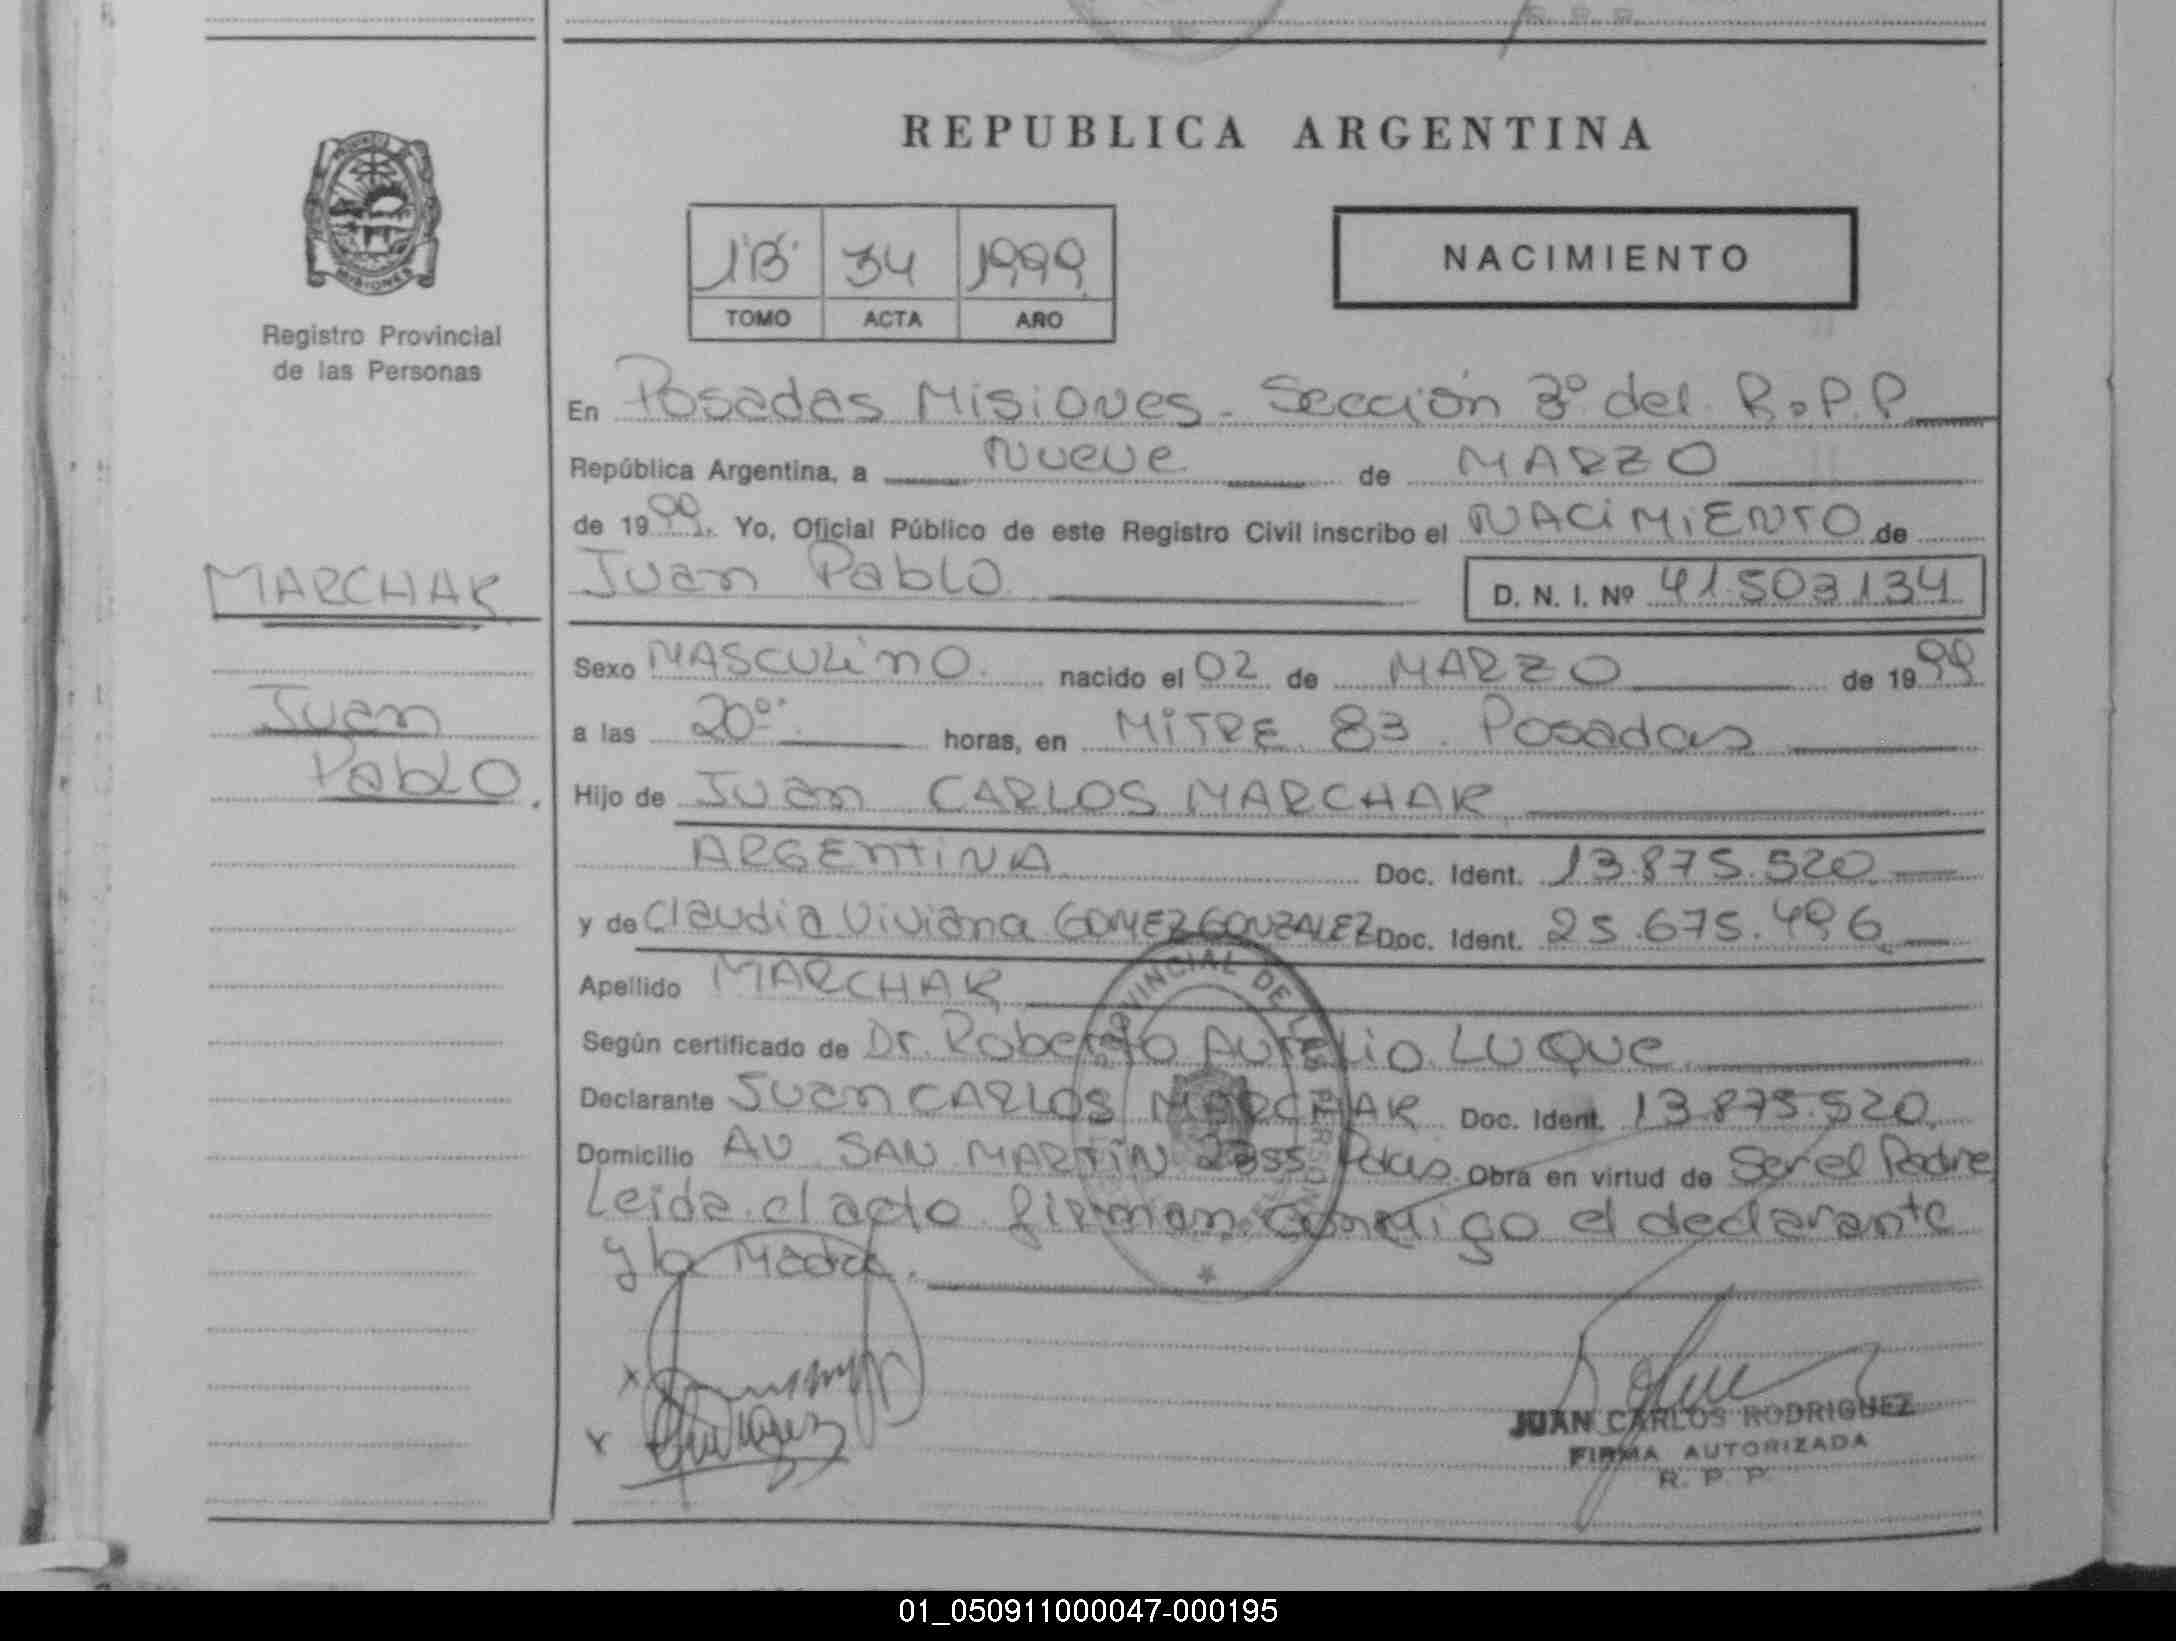 R. P. P.
REPUBLICA ARGENTINA
1"B" 34 1999
TOMO ACTA AÑO
NACIMIENTO
MISIONES
Registro Provincial
de las Personas
En Posadas Misiones - Sección 3º del R.P.P.
República Argentina, a Nueve de MARZO
de 1999. Yo, Oficial Público de este Registro Civil inscribo el NACIMIENTO de
MARCHAK
Juan Pablo D. N. I. Nº 41.503.134
Sexo MASCULINO. nacido el 02 de MARZO de 1999
Juan
Pablo.
a las 20º horas, en MITRE 83. Posadas
Hijo de Juan CARLOS MARCHAK
ARGENTINA Doc. Ident. 13.875.520
y de Claudia Viviana GOMEZ GONZALEZ Doc. Ident. 25.675.496
Apellido MARCHAK
Según certificado de Dr. Roberto Aurelio LUQUE
Declarante Juan CARLOS MARCHAK Doc. Ident. 13.875.520
Domicilio AV SAN MARTIN Pdas. Obra en virtud de Ser el Padre
Leida el acto firman conmigo el declarante
y la Madre.
PROVINCIAL DE LAS PERSONAS
JUAN CARLOS RODRIGUEZ
FIRMA AUTORIZADA
R. P. P.
01_050911000047-000195